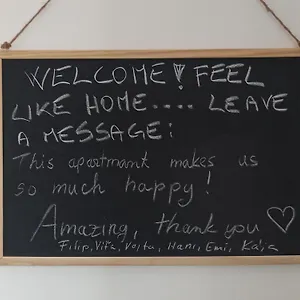 WELCOME! FEEL
LIKE HOME.... LEAVE
A MESSAGE:
This apartmant makes us
so much happy!
Amazing, thank you ♡
Filip, Víťa, Vojta, Hani, Emi, Kája